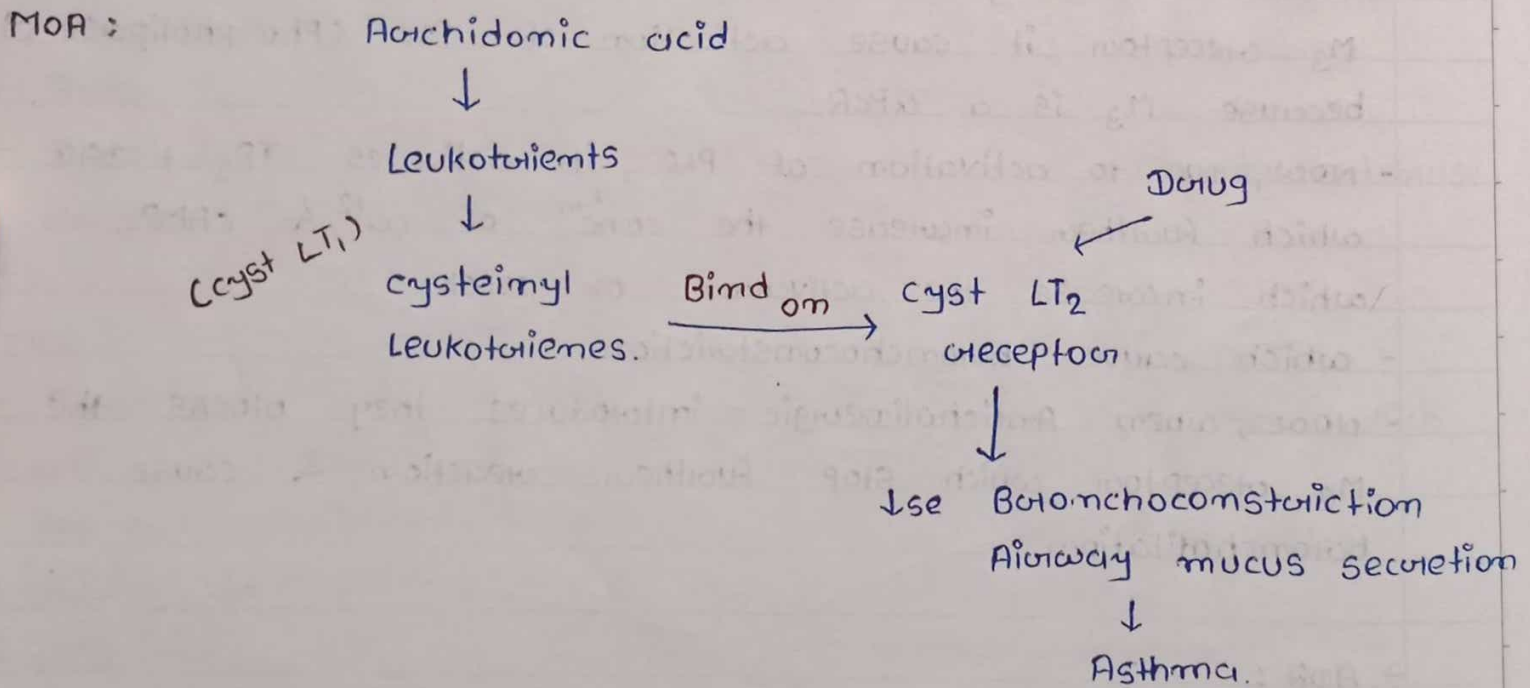 MOA :
Archidonic acid
↓
Leukotrients
↓
Drug
(cyst LT₁)
cysteinyl
Leukotrienes.
Bind on
cyst LT₂
receptor
↓
↓se Bronchoconstriction
Airway mucus secretion
↓
Asthma.